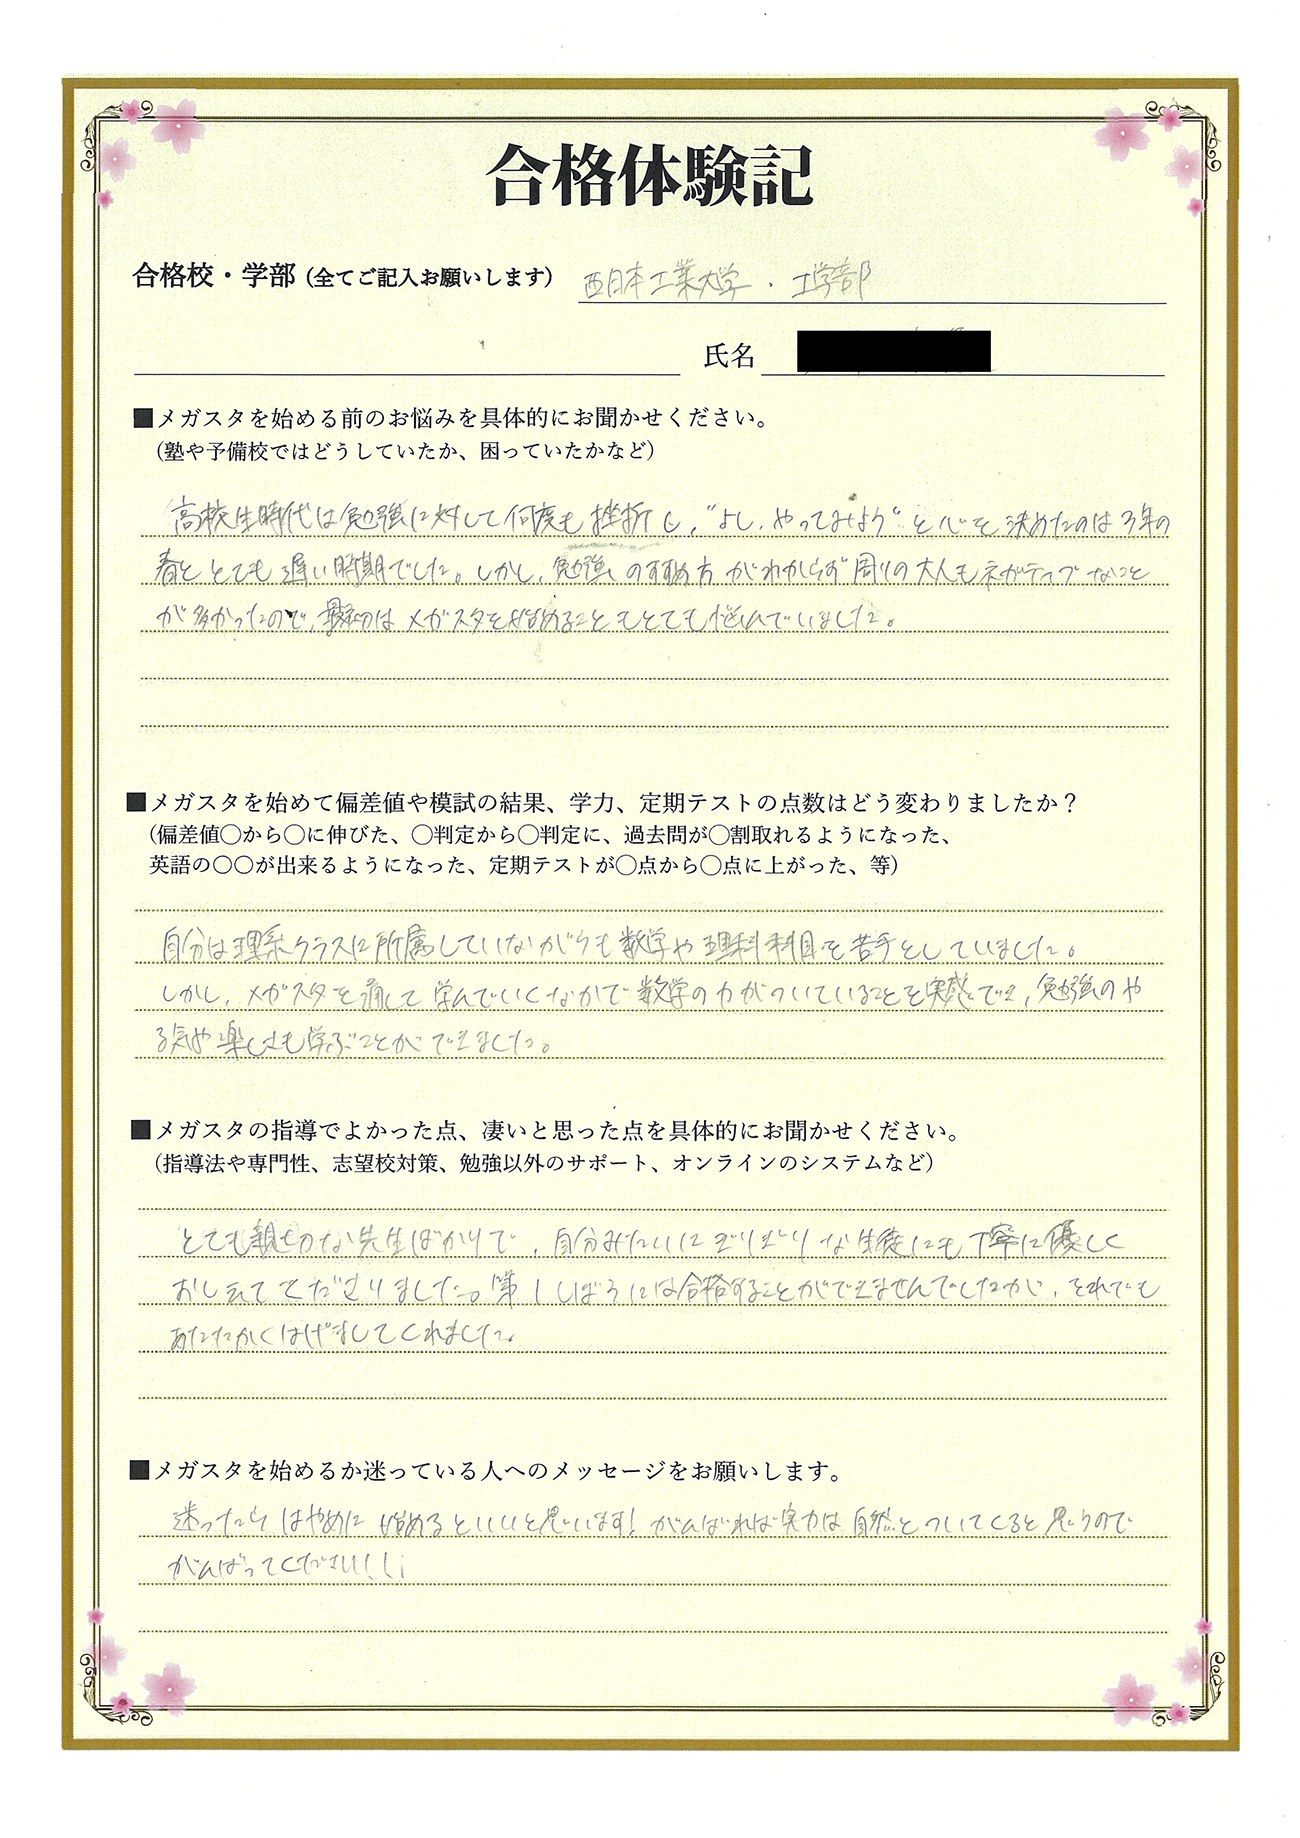 合格体験記
合格校・学部（全てご記入お願いします） 西日本工業大学 ・ 工学部
氏名
■メガスタを始める前のお悩みを具体的にお聞かせください。
（塾や予備校ではどうしていたか、困っていたかなど）
高校生時代は勉強に対して何度も挫折し、“よし、やってみよう”と心を決めたのは3年の
春ととても遅い時期でした。しかし、勉強のすすめ方がわからず周りの大人もネガティブなこと
が多かったので、最初はメガスタを始めることもとても悩んでいました。
■メガスタを始めて偏差値や模試の結果、学力、定期テストの点数はどう変わりましたか？
（偏差値〇から〇に伸びた、〇判定から〇判定に、過去問が〇割取れるようになった、
英語の〇〇が出来るようになった、定期テストが〇点から〇点に上がった、等）
自分は理系クラスに所属していながらも数学や理科科目を苦手としていました。
しかし、メガスタを通して学んでいくなかで数学の力がついていることを実感でき、勉強のや
る気や楽しさも学ぶことができました。
■メガスタの指導でよかった点、凄いと思った点を具体的にお聞かせください。
（指導法や専門性、志望校対策、勉強以外のサポート、オンラインのシステムなど）
とても親切な先生ばかりで、自分みたいにぎりぎりな生徒にも丁寧に優しく
おしえてくださりました。第1しぼうには合格することができませんでしたが、それでも
あたたかくはげましてくれました。
■メガスタを始めるか迷っている人へのメッセージをお願いします。
迷ったらはやめに始めるといいと思います！がんばれば実力は自然とついてくると思うので
がんばってください！！！